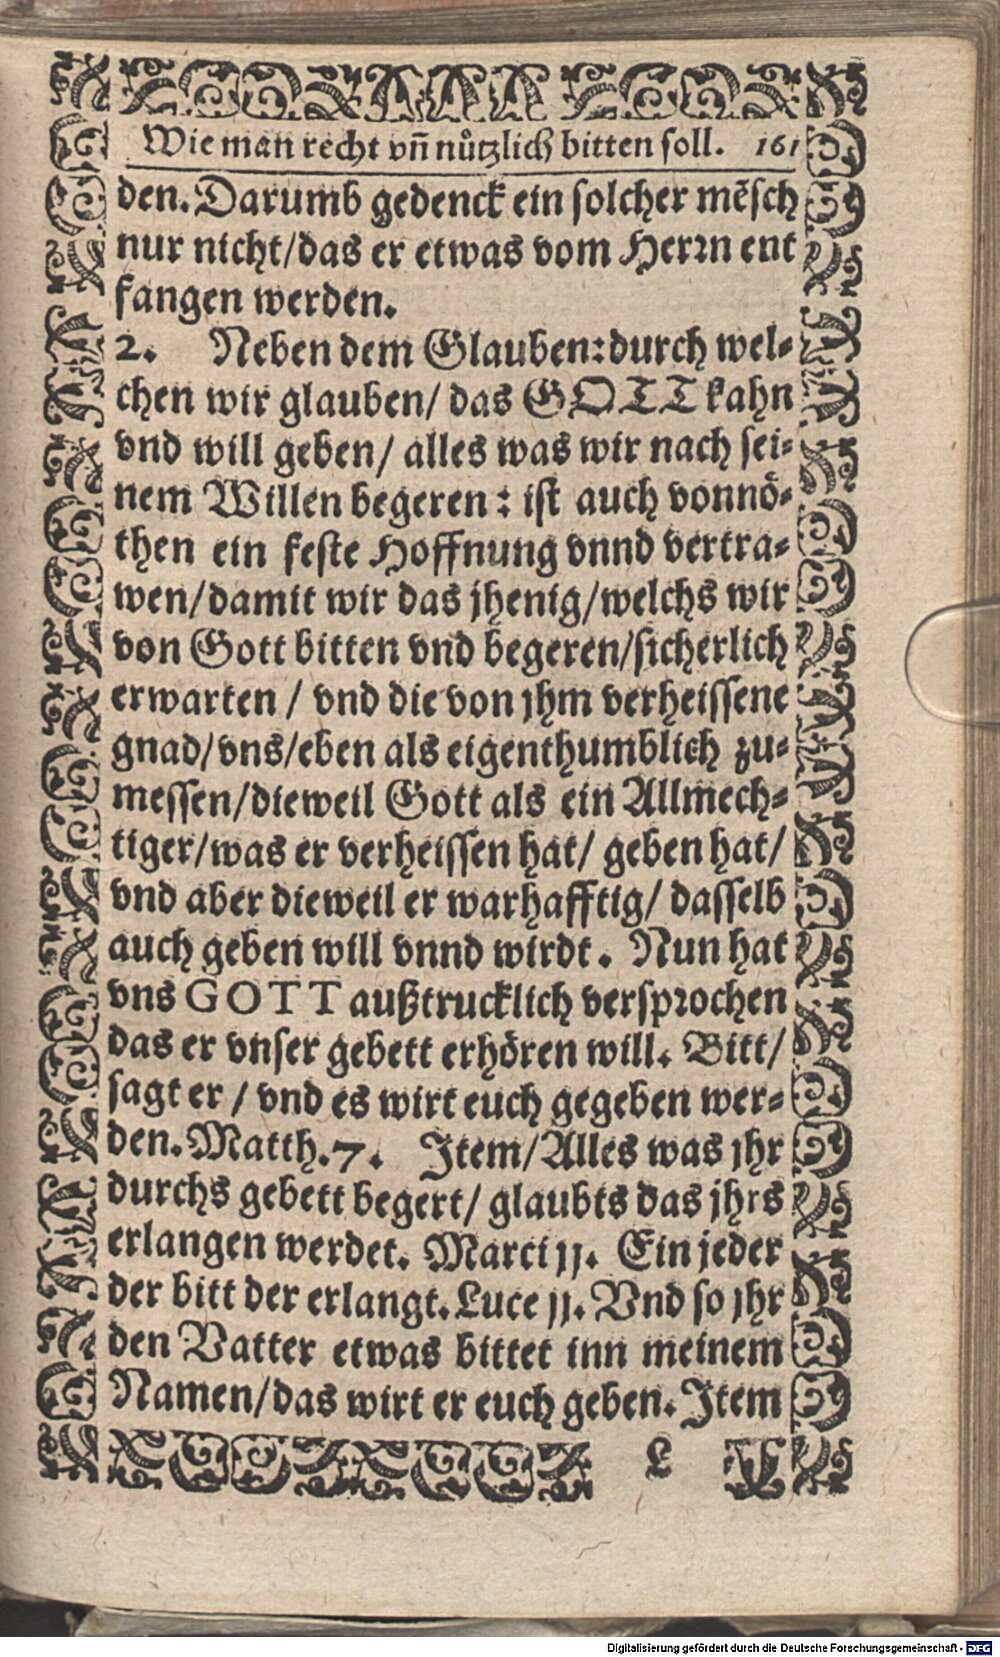 Wie man recht vñ nützlich bitten soll. 161
den. Darumb gedenck ein solcher mẽsch
nur nicht/das er etwas vom Herrn ent
fangen werden.
2. Neben dem Glauben:durch wel-
chen wir glauben/ das GOTT kahn
vnd will geben/ alles was wir nach sei-
nem Willen begeren: ist auch vonnö-
then ein feste Hoffnung vnnd vertra-
wen/damit wir das jhenig/welchs wir
von Gott bitten vnd begeren/sicherlich
erwarten / vnd die von jhm verheissene
gnad/vns/eben als eigenthumblich zu-
messen/dieweil Gott als ein Allmech-
tiger/was er verheissen hat/ geben hat/
vnd aber dieweil er warhafftig/ dasselb
auch geben will vnnd wirdt. Nun hat
vns GOTT außtrucklich versprochen
das er vnser gebett erhören will. Bitt/
sagt er / vnd es wirt euch gegeben wer-
den. Matth. 7. Item/Alles was jhr
durchs gebett begert/ glaubts das jhrs
erlangen werdet. Marci jj. Ein jeder
der bitt der erlangt. Luce jj. Vnd so jhr
den Vatter etwas bittet inn meinem
Namen/das wirt er euch geben. Item
L
Digitalisierung gefördert durch die Deutsche Forschungsgemeinschaft - DFG